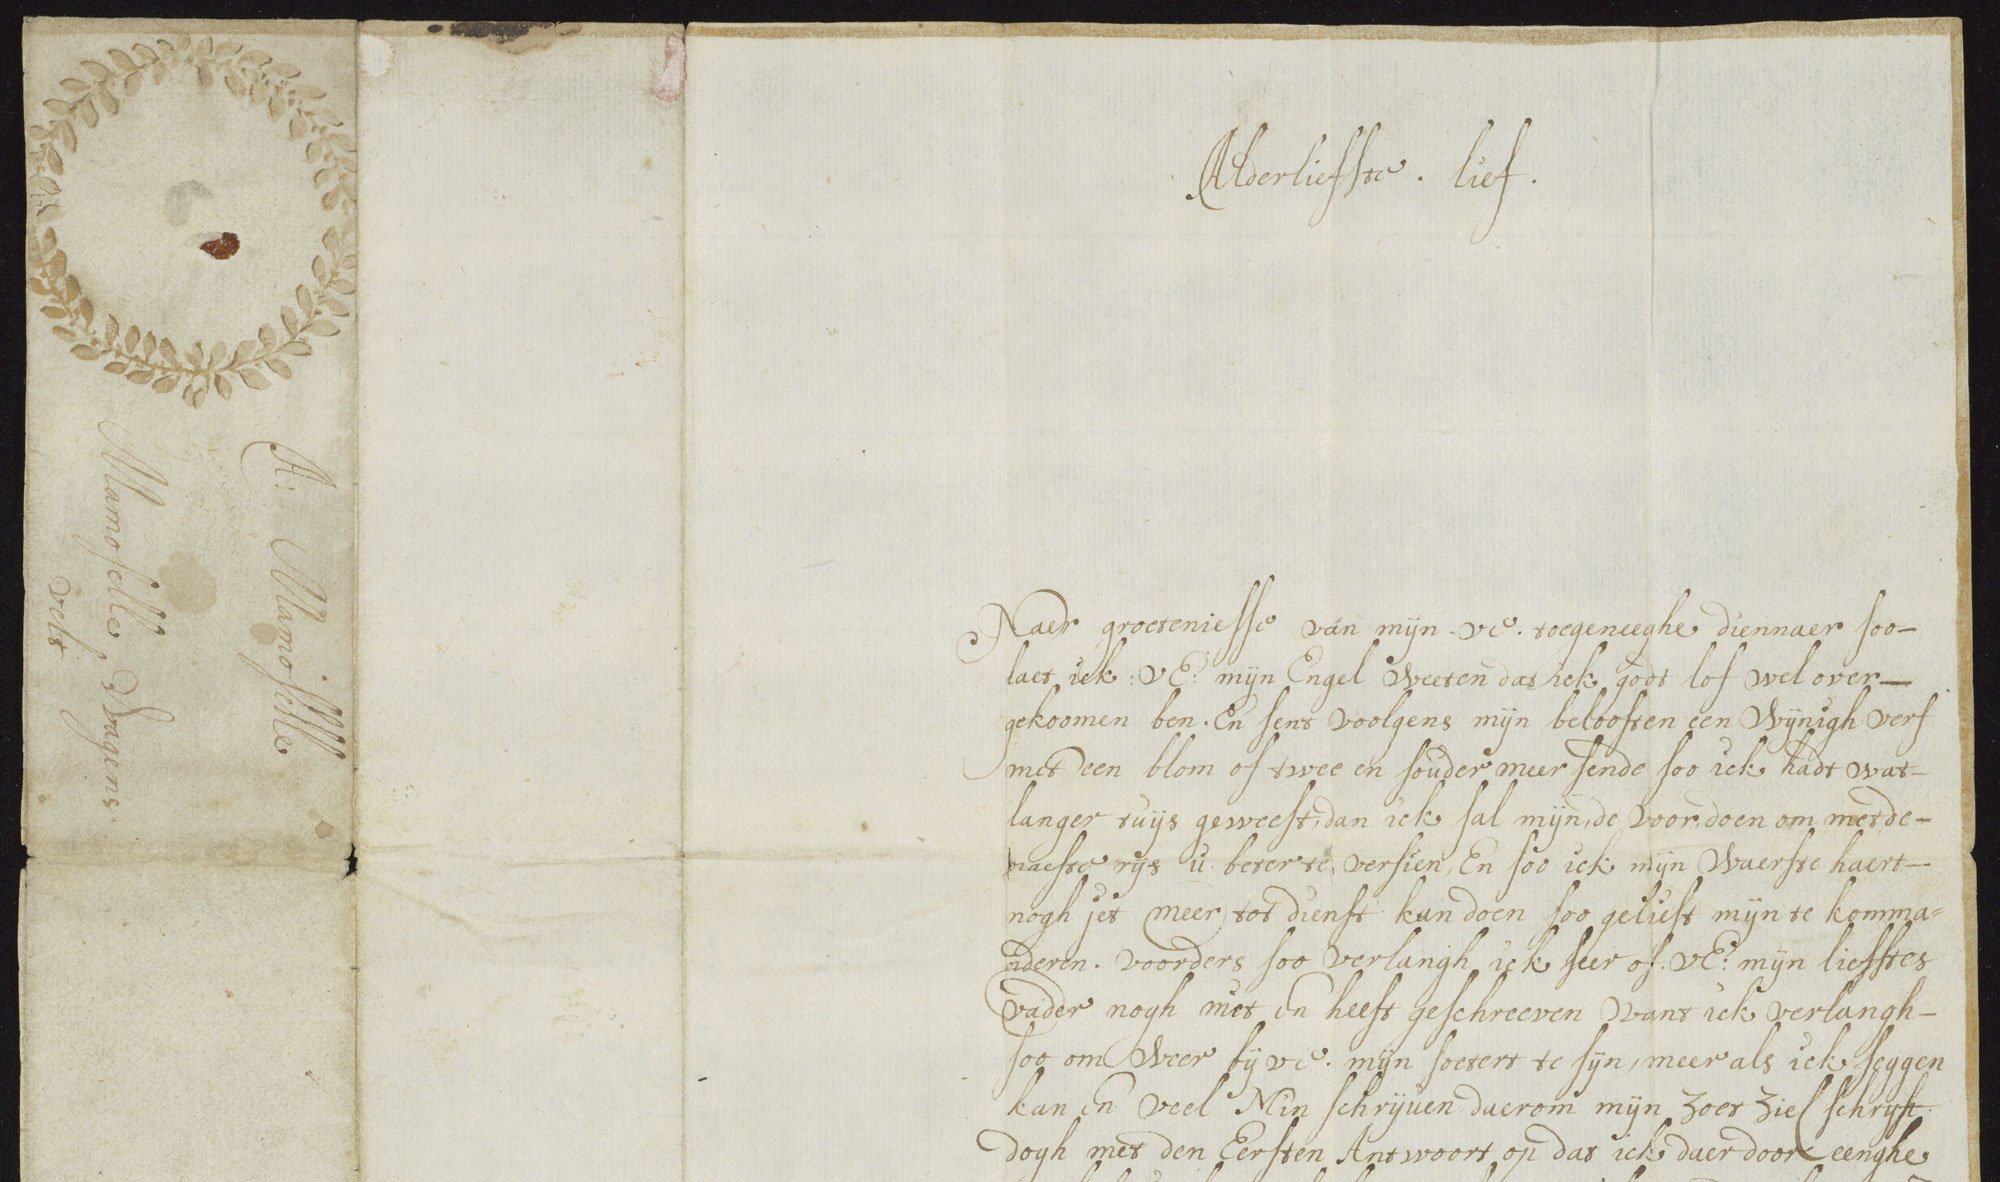 A: Mamoselle
Mamoselle Wagens
velt
Alderliefste. lief.
Naer groeteniesse van mijn. ve. toegeneeghe diennaer soo-
laet ick: VE: mijn Engel Weeten dat ick godt lof wel over-
gekoomen ben. En sent voolgens mijn beloosten een Wijnigh verf
met een blom of twee en souder meer sende soo ick hadt wat-
langer tuijs geweest, dan ick sal mijn, de voor, doen om met de-
naeste rijs u. beter te versien, En soo ick mijn Waerste haert-
nogh jet meer tot dienst kan doen soo gelieft mijn te komma=
nderen. voorders soo verlangh ick seer of. VE: mijn liefstes
vader nogh niet En heeft geschreeven Want ick verlangh-
soo om Weer bij ve. mijn soetert te sijn, meer als ick seggen
kan En veel Min schrijven daerom mijn zoet ziel schrijft
dogh met den Eersten Antwoort op dat ick daer door eenghe